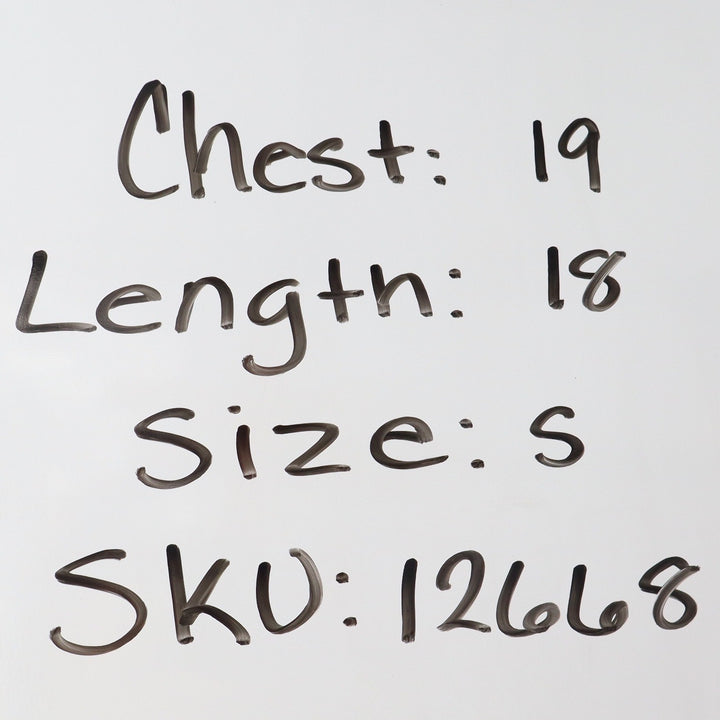 Chest: 19
Length: 18
Size: S
SKU: 12668